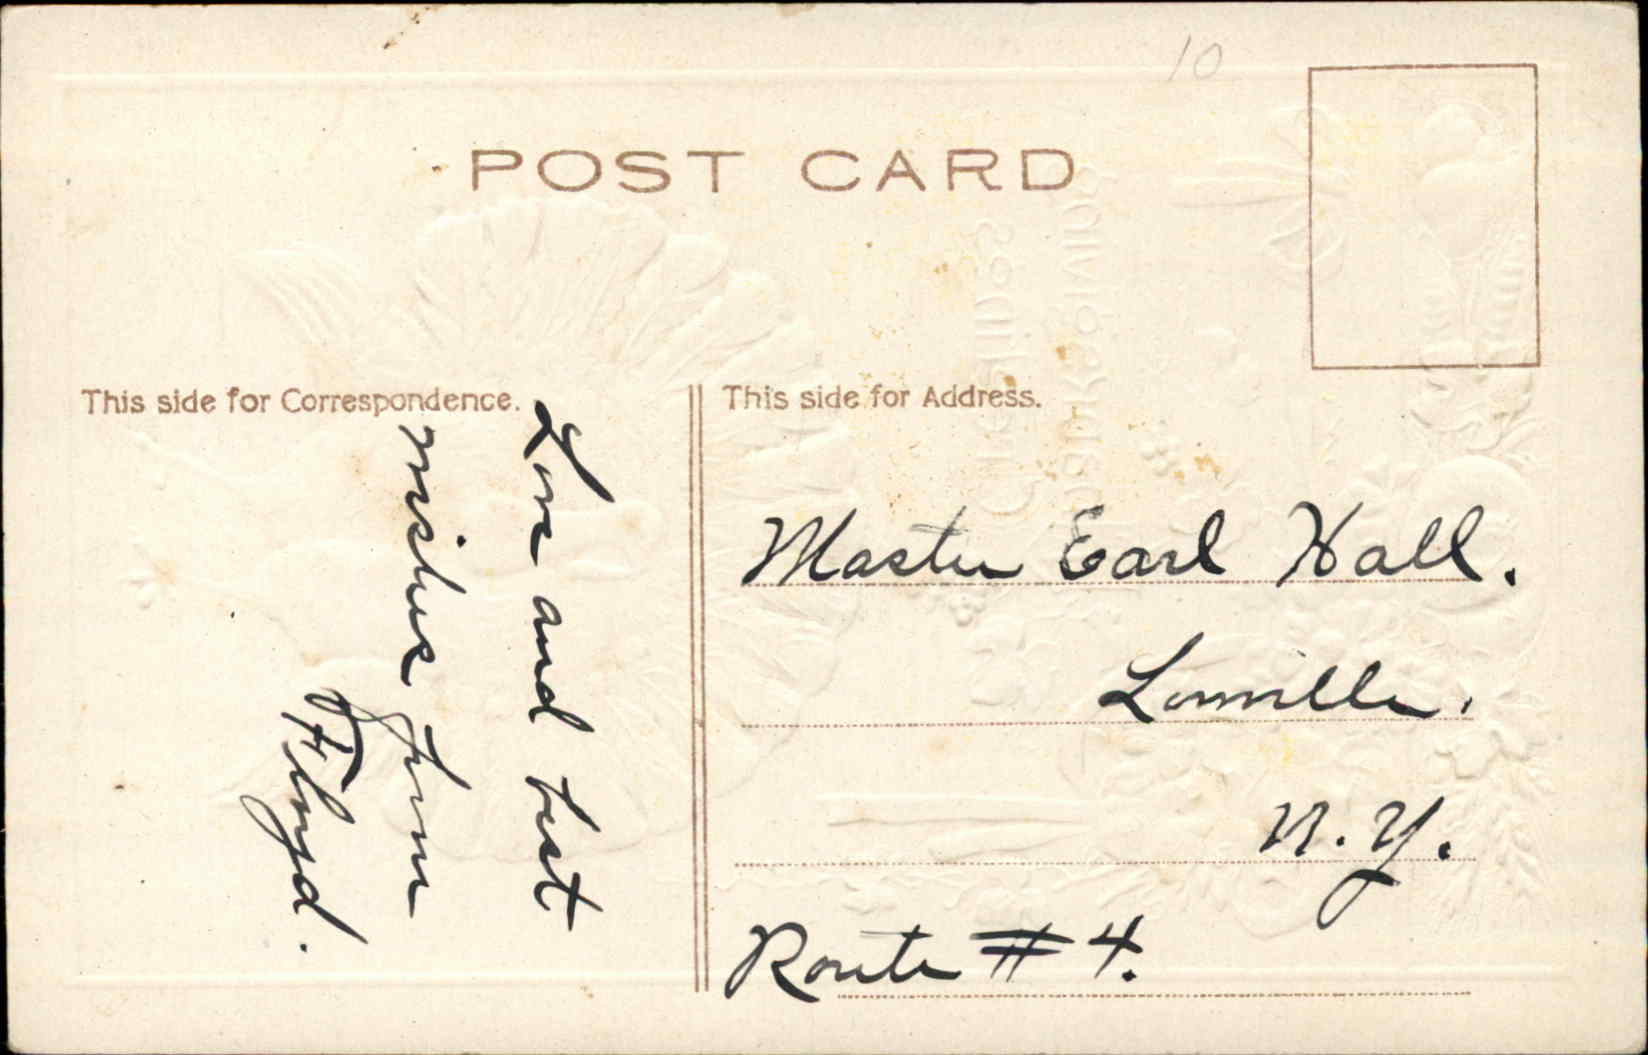 10
POST CARD
This side for Correspondence.
This side for Address.
Love and best
wishes from
Floyd.
Master Earl Hall.
Lowville.
N.Y.
Route # 4.